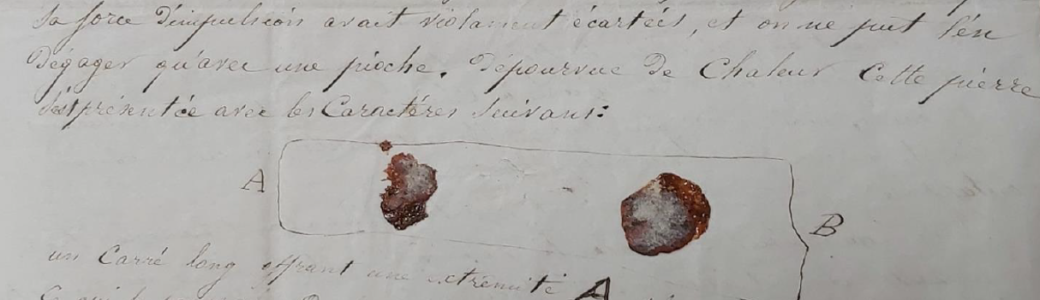 sa force d'impulsion avait violament écartées, et on ne put l'en
dégager qu'avec une pioche. Dépourvue de Chaleur Cette pierre
s'est présentée avec les Caractères suivans:
A
B
un Carré long offrant une extremité A